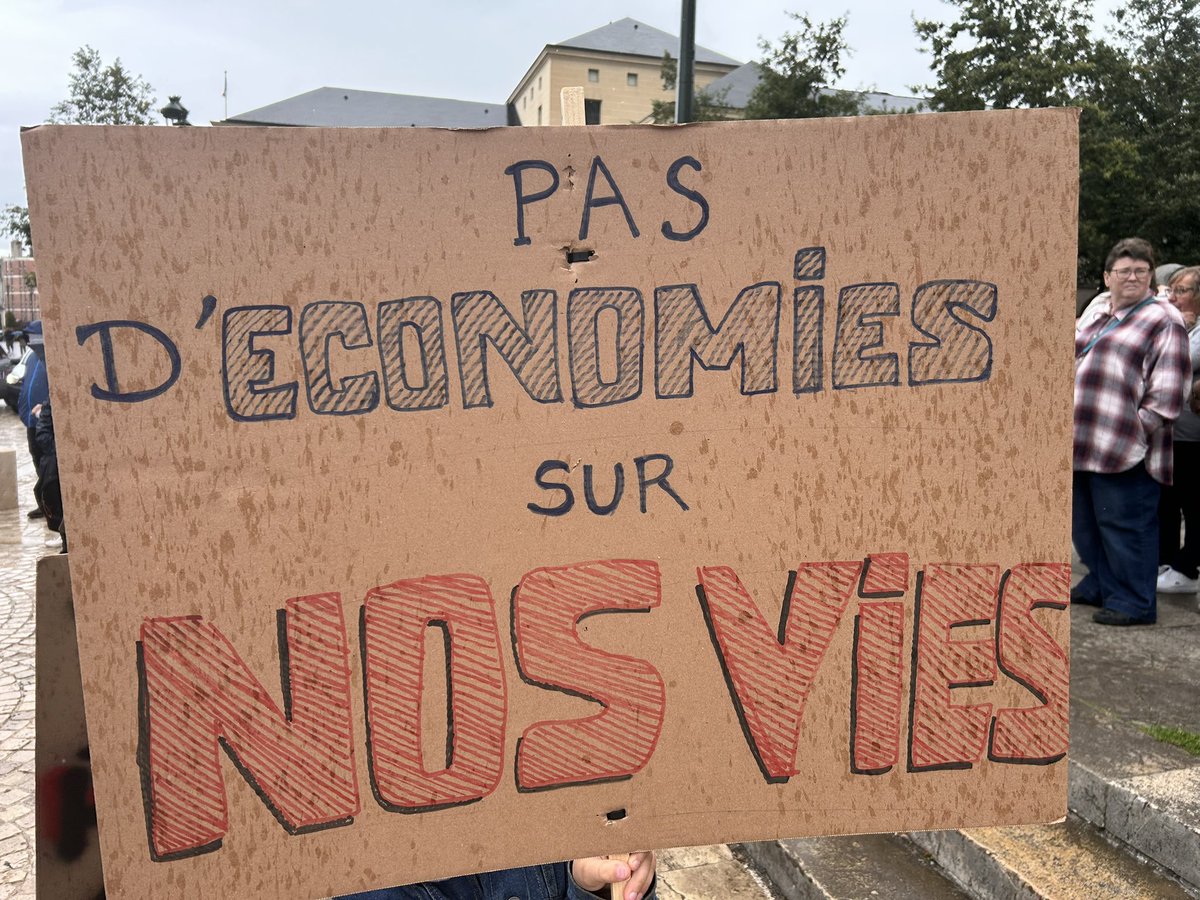 PAS
D'ECONOMiES
SUR
NOS ViES